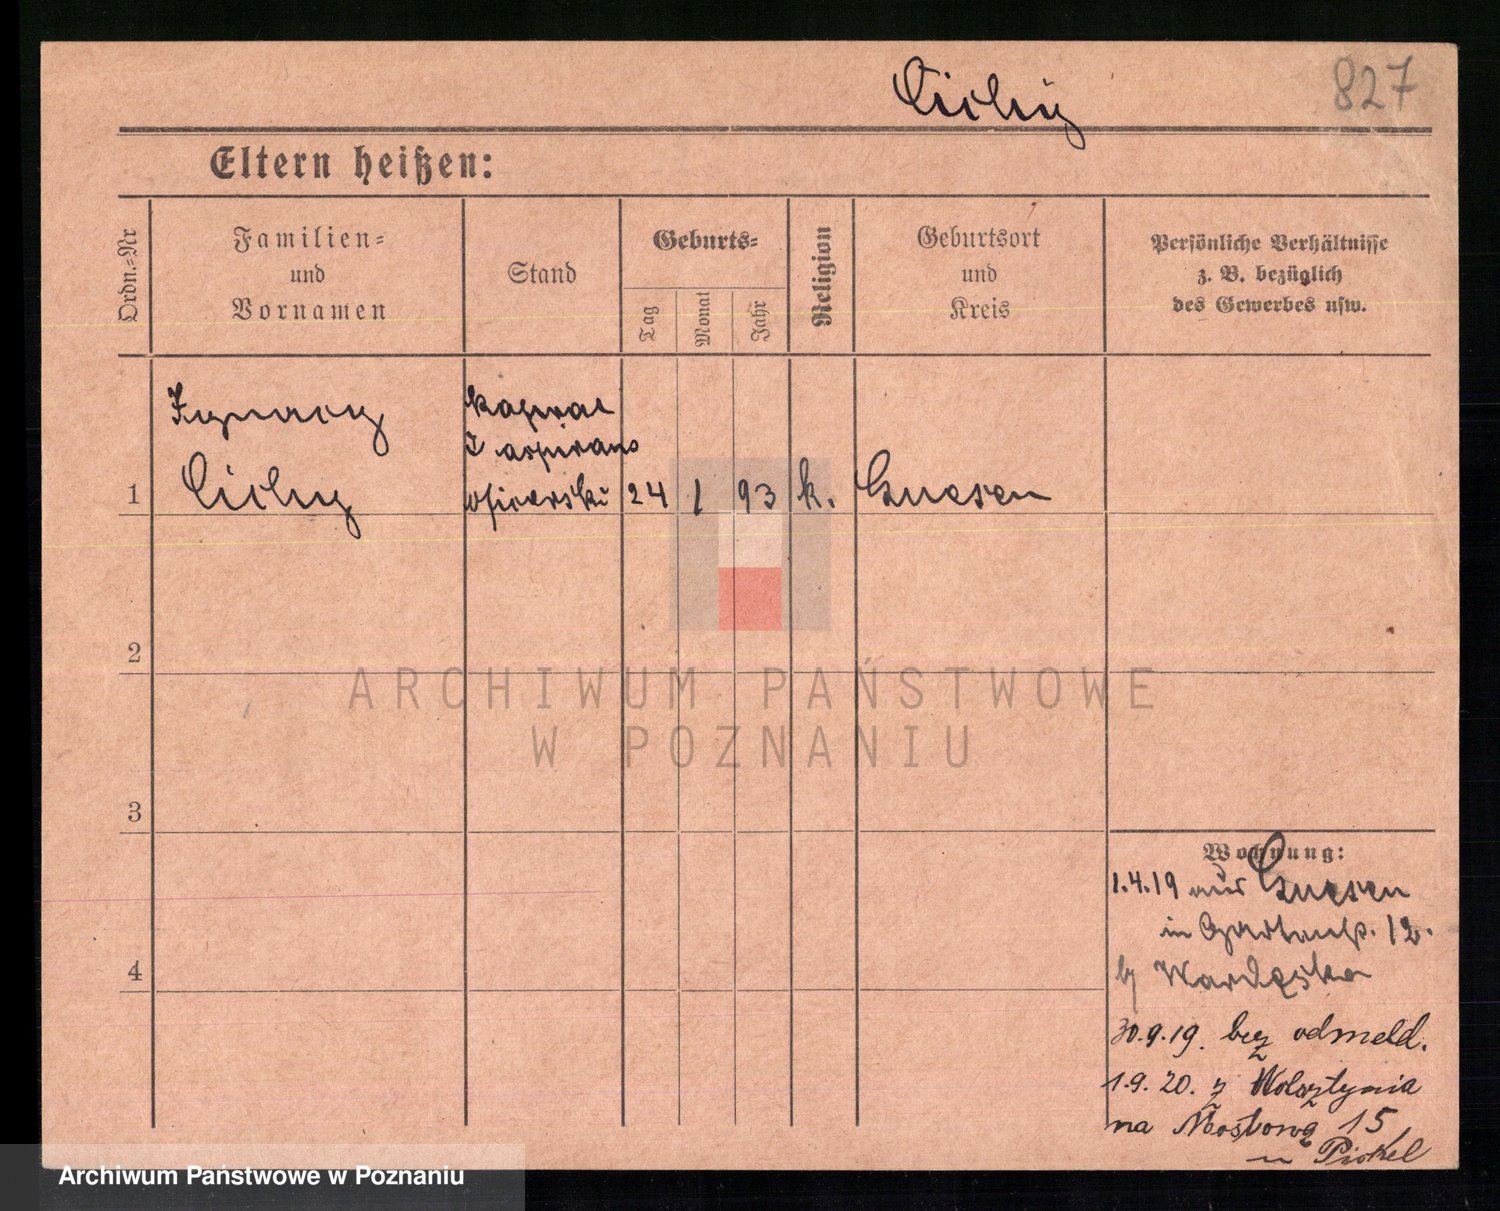 Cichy
827
Eltern heißen:
Ordn.=Nr
Familien=
und
Vornamen
Stand
Geburts=
Tag
Monat
Jahr
Religion
Geburtsort
und
Kreis
Persönliche Verhältnisse
z. B. bezüglich
des Gewerbes usw.
Ignacy
Cichy
kapral
i aspirant
oficerski
1
24
1
93
k.
Gnesen
2
3
4
ARCHIWUM PAŃSTWOWE
W POZNANIU
Wohnung:
1.4.19 aus Gnesen
in Gartenstr. 12.
b/
30.9.19. bez odmeld.
1.9.20. z Wolsztynia
na Mostową 15
Archiwum Państwowe w Poznaniu